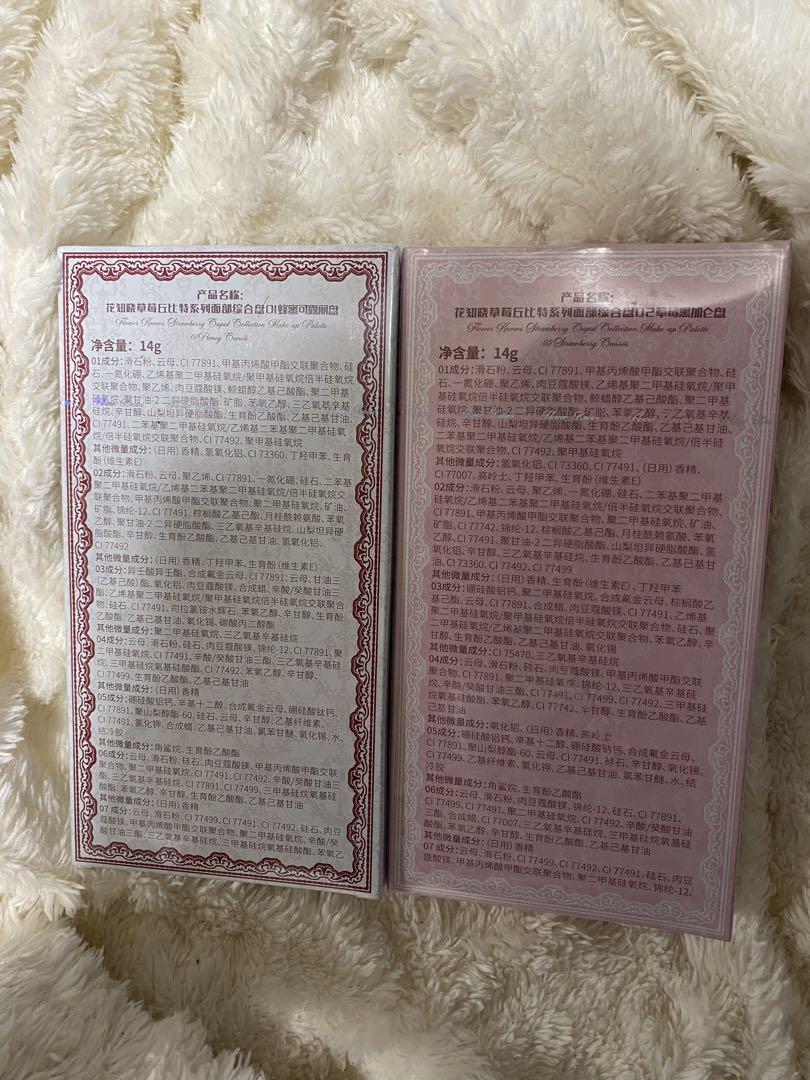 产品名称:
花知晓草莓丘比特系列面部综合盘01蜂蜜可露丽盘
Flower Knows Strawberry Cupid Collection Make-up Palette
01Honey Canelé
净含量: 14g
01成分: 滑石粉、云母、CI 77891、甲基丙烯酸甲酯交联聚合物、硅
石、一氮化硼、乙烯基聚二甲基硅氧烷/聚甲基硅氧烷倍半硅氧烷
交联聚合物、聚乙烯、肉豆蔻酸镁、鲸蜡醇乙基己酸酯、聚二甲基
硅氧烷、聚甘油-2二异硬脂酸酯、矿脂、苯氧乙醇、三乙氧基辛基
硅烷、辛甘醇、山梨坦异硬脂酸酯、生育酚乙酸酯、乙基己基甘油、
CI 77491、二苯基聚二甲基硅氧烷/乙烯基二苯基聚二甲基硅氧
烷/倍半硅氧烷交联聚合物、CI 77492、聚甲基硅氧烷
其他微量成分: (日用)香精、氢氧化铝、CI 73360、丁羟甲苯、生育
酚(维生素E)
02成分: 滑石粉、云母、聚乙烯、CI 77891、一氮化硼、硅石、二苯基
聚二甲基硅氧烷/乙烯基二苯基聚二甲基硅氧烷/倍半硅氧烷交
联聚合物、甲基丙烯酸甲酯交联聚合物、聚二甲基硅氧烷、矿油、
矿脂、锦纶-12、CI 77491、棕榈酸乙基己酯、月桂酰赖氨酸、苯氧
乙醇、聚甘油-2二异硬脂酸酯、三乙氧基辛基硅烷、山梨坦异硬
脂酸酯、辛甘醇、生育酚乙酸酯、乙基己基甘油、氢氧化铝、
CI 77492
其他微量成分: (日用)香精、丁羟甲苯、生育酚(维生素E)
03成分: 异壬酸异壬酯、合成氟金云母、CI 77891、云母、甘油三
(乙基己酸)酯、氧化铝、肉豆蔻酸镁、合成蜡、辛酸/癸酸甘油三
酯、乙烯基聚二甲基硅氧烷/聚甲基硅氧烷倍半硅氧烷交联聚合
物、硅石、CI 77491、司拉氯铵水辉石、苯氧乙醇、辛甘醇、生育酚
乙酸酯、乙基己基甘油、氧化锡、碳酸丙二醇酯
其他微量成分: 聚二甲基硅氧烷、三乙氧基辛基硅烷
04成分: 云母、滑石粉、硅石、肉豆蔻酸镁、锦纶-12、CI 77891、聚
二甲基硅氧烷、CI 77491、辛酸/癸酸甘油三酯、三乙氧基辛基硅
烷、三甲基硅烷氧基硅酸酯、CI 77492、苯氧乙醇、辛甘醇、
CI 77499、生育酚乙酸酯、乙基己基甘油
其他微量成分: (日用)香精
05成分: 硼硅酸铝钙、辛基十二醇、合成氟金云母、硼硅酸钛钙、
CI 77891、聚山梨醇酯-60、硅石、云母、辛甘醇、乙基纤维素、
CI 77491、氯化钾、合成蜡、乙基己基甘油、氯苯甘醚、氧化锡、水、
结冷胶
其他微量成分: 角鲨烷、生育酚乙酸酯
06成分: 云母、滑石粉、硅石、肉豆蔻酸镁、甲基丙烯酸甲酯交联
聚合物、聚二甲基硅氧烷、CI 77491、CI 77492、辛酸/癸酸甘油三
酯、三乙氧基辛基硅烷、CI 77891、CI 77499、三甲基硅烷氧基硅
酸酯、苯氧乙醇、辛甘醇、生育酚乙酸酯、乙基己基甘油
其他微量成分: (日用)香精
07 成分: 云母、滑石粉、CI 77499、CI 77491、CI 77492、硅石、肉豆
蔻酸镁、甲基丙烯酸甲酯交联聚合物、聚二甲基硅氧烷、辛酸/癸
酸甘油三酯、三乙氧基辛基硅烷、三甲基硅烷氧基硅酸酯、苯氧乙
产品名称:
花知晓草莓丘比特系列面部综合盘02草莓黑加仑盘
Flower Knows Strawberry Cupid Collection Make-up Palette
02 Strawberry Cassis
净含量: 14g
01成分: 滑石粉、云母、CI 77891、甲基丙烯酸甲酯交联聚合物、硅
石、一氮化硼、聚乙烯、乙烯基聚二甲基硅氧烷/聚甲
基硅氧烷倍半硅氧烷交联聚合物、鲸蜡醇乙基己酸酯、聚二甲
基硅氧烷、聚甘油-2二异硬脂酸酯、矿脂、苯氧乙醇、三乙氧基辛基
硅烷、辛甘醇、山梨坦异硬脂酸酯、生育酚乙酸酯、乙基己基甘油、
二苯基聚二甲基硅氧烷/乙烯基二苯基聚二甲基硅氧烷/倍半硅
氧烷交联聚合物、CI 77492、聚甲基硅氧烷
其他微量成分: 氢氧化铝、CI 73360、CI 77491、(日用)香精、
CI 77007、高岭土、丁羟甲苯、生育酚(维生素E)
02成分: 滑石粉、云母、聚乙烯、一氮化硼、硅石、二苯基聚二甲基
硅氧烷/乙烯基二苯基聚二甲基硅氧烷/倍半硅氧烷交联聚合物、CI
77891、甲基丙烯酸甲酯交联聚合物、聚二甲基硅氧烷、矿油、
矿脂、CI 77742、锦纶-12、棕榈酸乙基己酯、月桂酰赖氨酸、苯氧
乙醇、CI 77491、聚甘油-2二异硬脂酸酯、山梨坦异硬脂酸酯、氢
氧化铝、辛甘醇、三乙氧基辛基硅烷、生育酚乙酸酯、乙基己基甘
油、CI 73360、CI 77492、CI 77499
其他微量成分: (日用)香精、生育酚(维生素E)、丁羟甲苯
03成分: 硼硅酸铝钙、聚二甲基硅氧烷、合成氟金云母、棕榈酸乙
基己酯、云母、CI 77891、合成蜡、肉豆蔻酸镁、CI 77491、乙烯基
聚二甲基硅氧烷/聚甲基硅氧烷倍半硅氧烷交联聚合物、硅石、聚
甘醇、生育酚乙酸酯、乙基己基甘油、氧化锡
其他微量成分: CI 75470、三乙氧基辛基硅烷
04成分: 云母、滑石粉、硅石、肉豆蔻酸镁、甲基丙烯酸甲酯交联
聚合物、CI 77891、聚二甲基硅氧烷、锦纶-12、三乙氧基辛基硅
烷、辛酸/癸酸甘油三酯、CI 77491、CI 77499、CI 77492、三甲基硅烷
氧基硅酸酯、苯氧乙醇、CI 77742、辛甘醇、生育酚乙酸酯、乙基己
基甘油
其他微量成分: 氧化铝、(日用)香精、高岭土
05成分: 硼硅酸铝钙、辛基十二醇、硼硅酸钠钙、合成氟金云母、
CI 77891、聚山梨醇酯-60、云母、CI 77491、硅石、辛甘醇、氧化锡、
CI 77499、乙基纤维素、氯化钾、乙基己基甘油、氯苯甘醚、水、
结冷胶
其他微量成分: 角鲨烷、生育酚乙酸酯
06成分: 云母、滑石粉、肉豆蔻酸镁、锦纶-12、硅石、CI 77891、
CI 77499、CI 77491、聚二甲基硅氧烷、CI 77492、辛酸/癸酸甘油
三酯、合成蜡、CI 77007、三乙氧基辛基硅烷、三甲基硅烷氧基硅
酸酯、苯氧乙醇、辛甘醇、生育酚乙酸酯、乙基己基甘油
其他微量成分: (日用)香精
07 成分: 云母、滑石粉、CI 77499、CI 77492、CI 77491、硅石、肉豆
蔻酸镁、甲基丙烯酸甲酯交联聚合物、聚二甲基硅氧烷、锦纶-12、